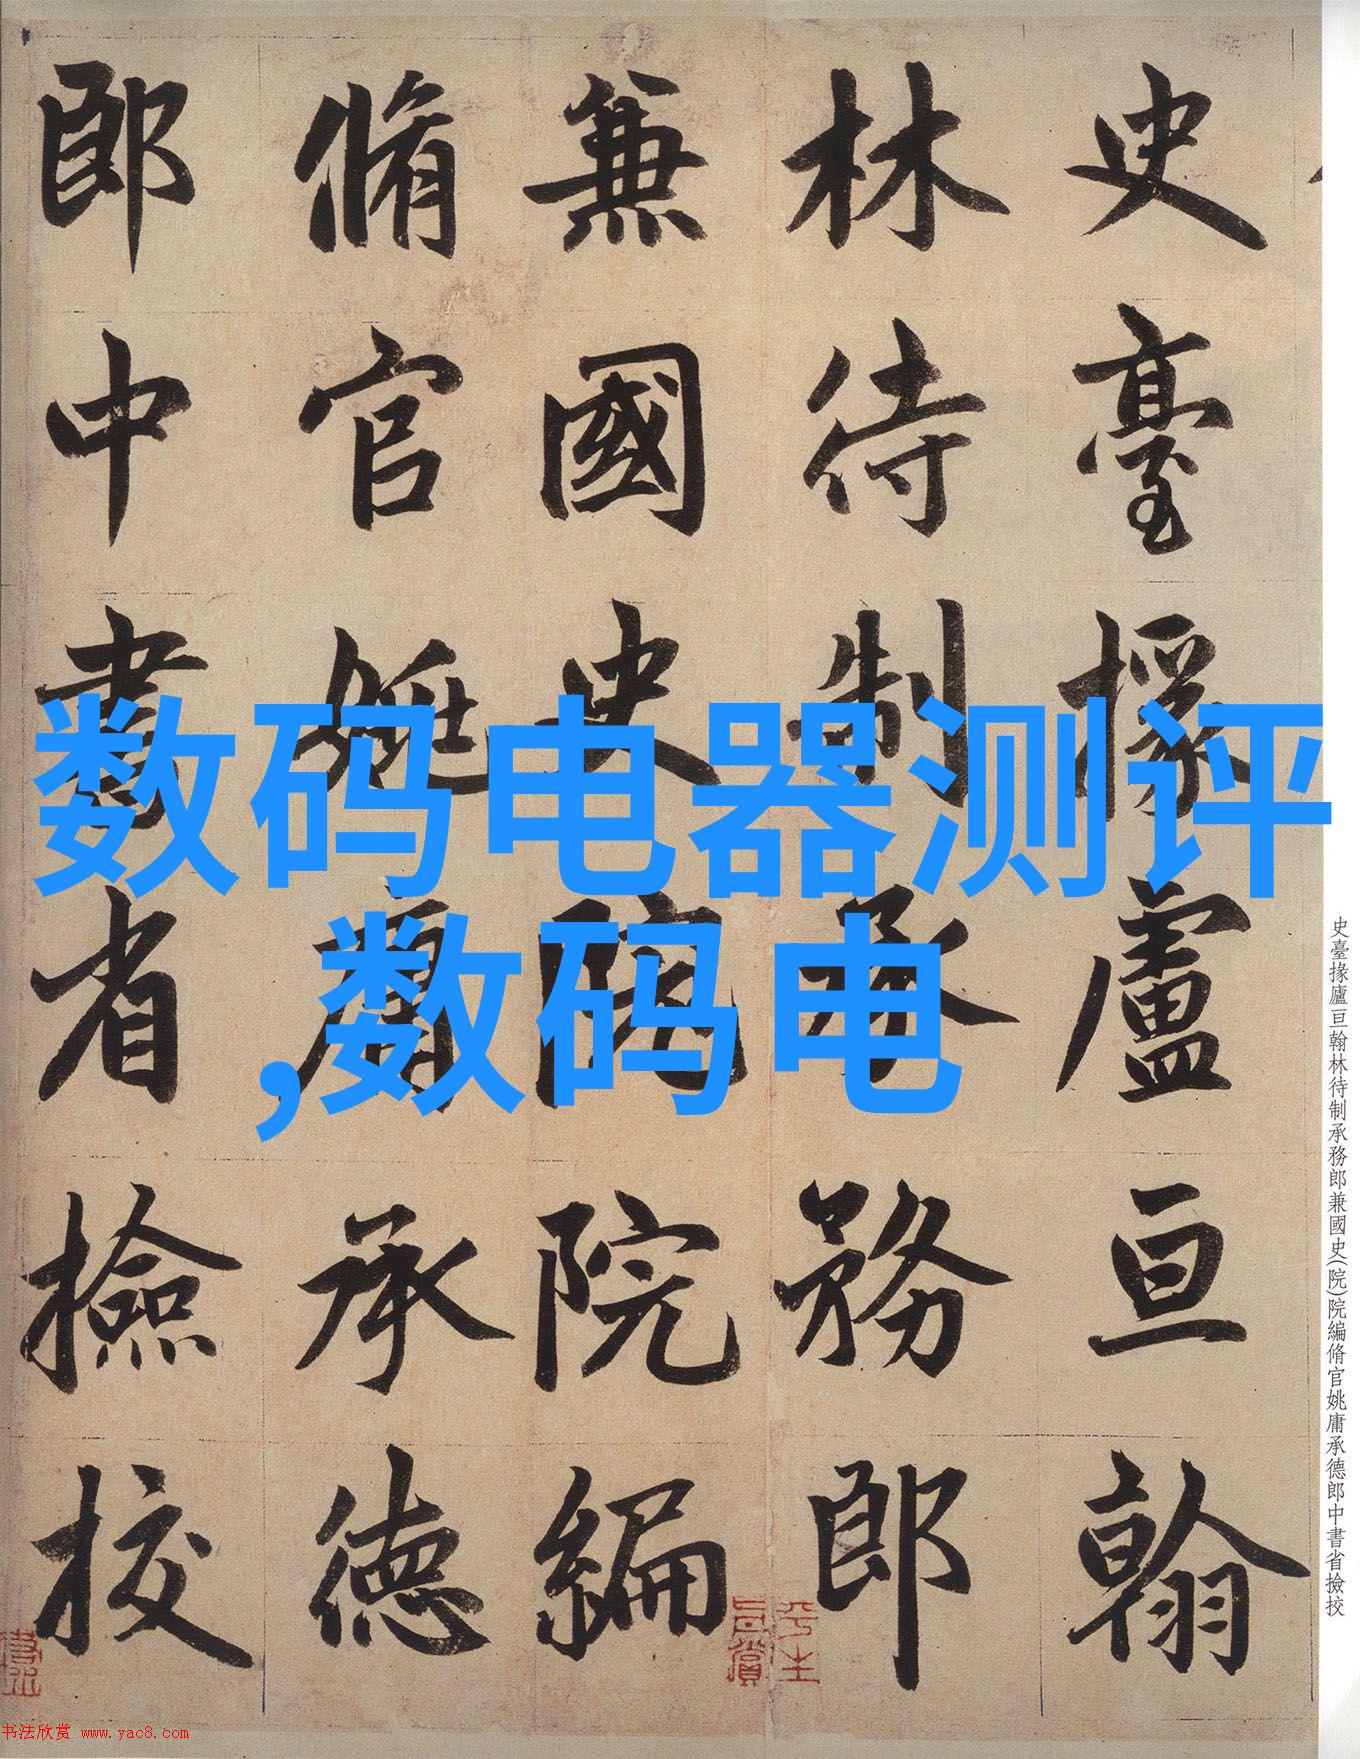 史臺掾盧亘翰
林待制承務郎
兼國史院院編
脩官姚庸承德
郎中書省撿挍
数码电器测评
,数码电
史臺掾廬亘翰林待制承務郎兼國史(院)院編脩官姚庸承德郎中書省撿挍
书法欣赏 www.yac8.com